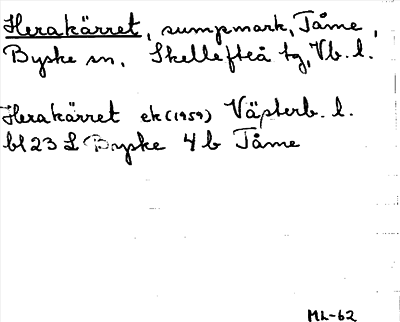 Herakärret, sumpmark, Tåme,
Byske sn, Skellefteå tg, Vb. l.
Herakärret ek (1959) Västerb. l.
bl 23 L Byske 4 b Tåme
ML-62